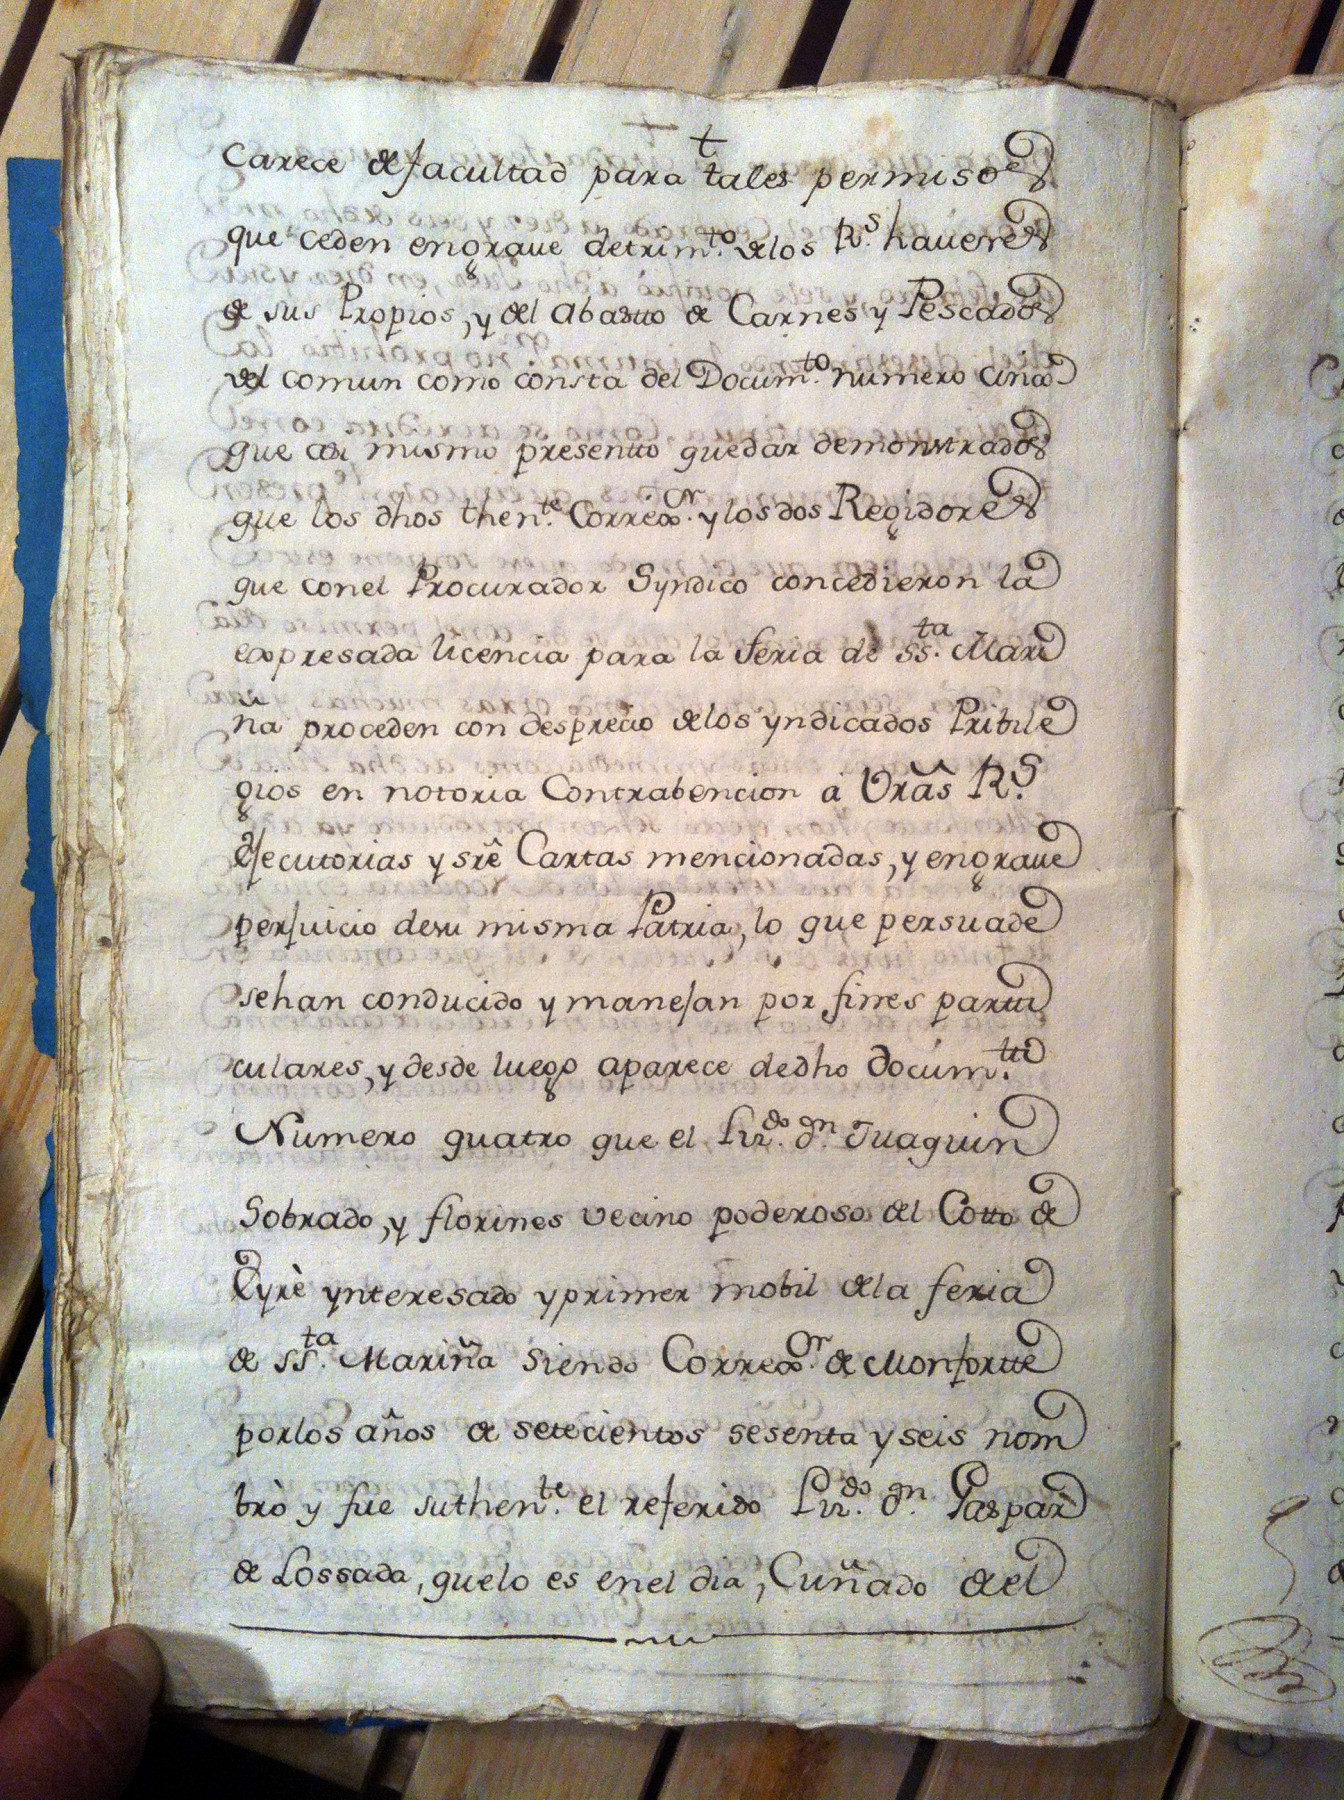 t
Carece de facultad para tales permisos
que ceden engrave detrim.to de los R.s haveres
de sus Propios, y del Abastto de Carnes y Pescados
del comun como consta del Docum.to numero cinco
que asi mismo presentto quedar demonstrados
que los dhos then.te Correx.or y los dos Regidores
que conel Procurador Syndico concedieron la
expresada licencia para la feria de ss.ta Mari
ña proceden con desprecio delos yndicados Pribile
gios en notoria Contrabencion á Vrãs R.s
Ejecutorias y srẽ Cartas mencionadas, y engrave
perjuicio desu misma Patria, lo que persuade
sehan conducido y manejan por fines partti
culares, y desde luego aparece dedho docum.tto
Numero quatro que el Liz.do dn. Juaquin
Sobrado, y florines vecino poderoso del Cotto de
Eyrè ynteresado y primer mobil dela feria
de ss.ta Mariña siendo Correx.or de Monfortte
porlos años de setecientos sesenta y seis nom
brò y fue suthen.te el referido Liz.do dn. Gaspar
de Lossada, quelo es enel dia, Cuñado del